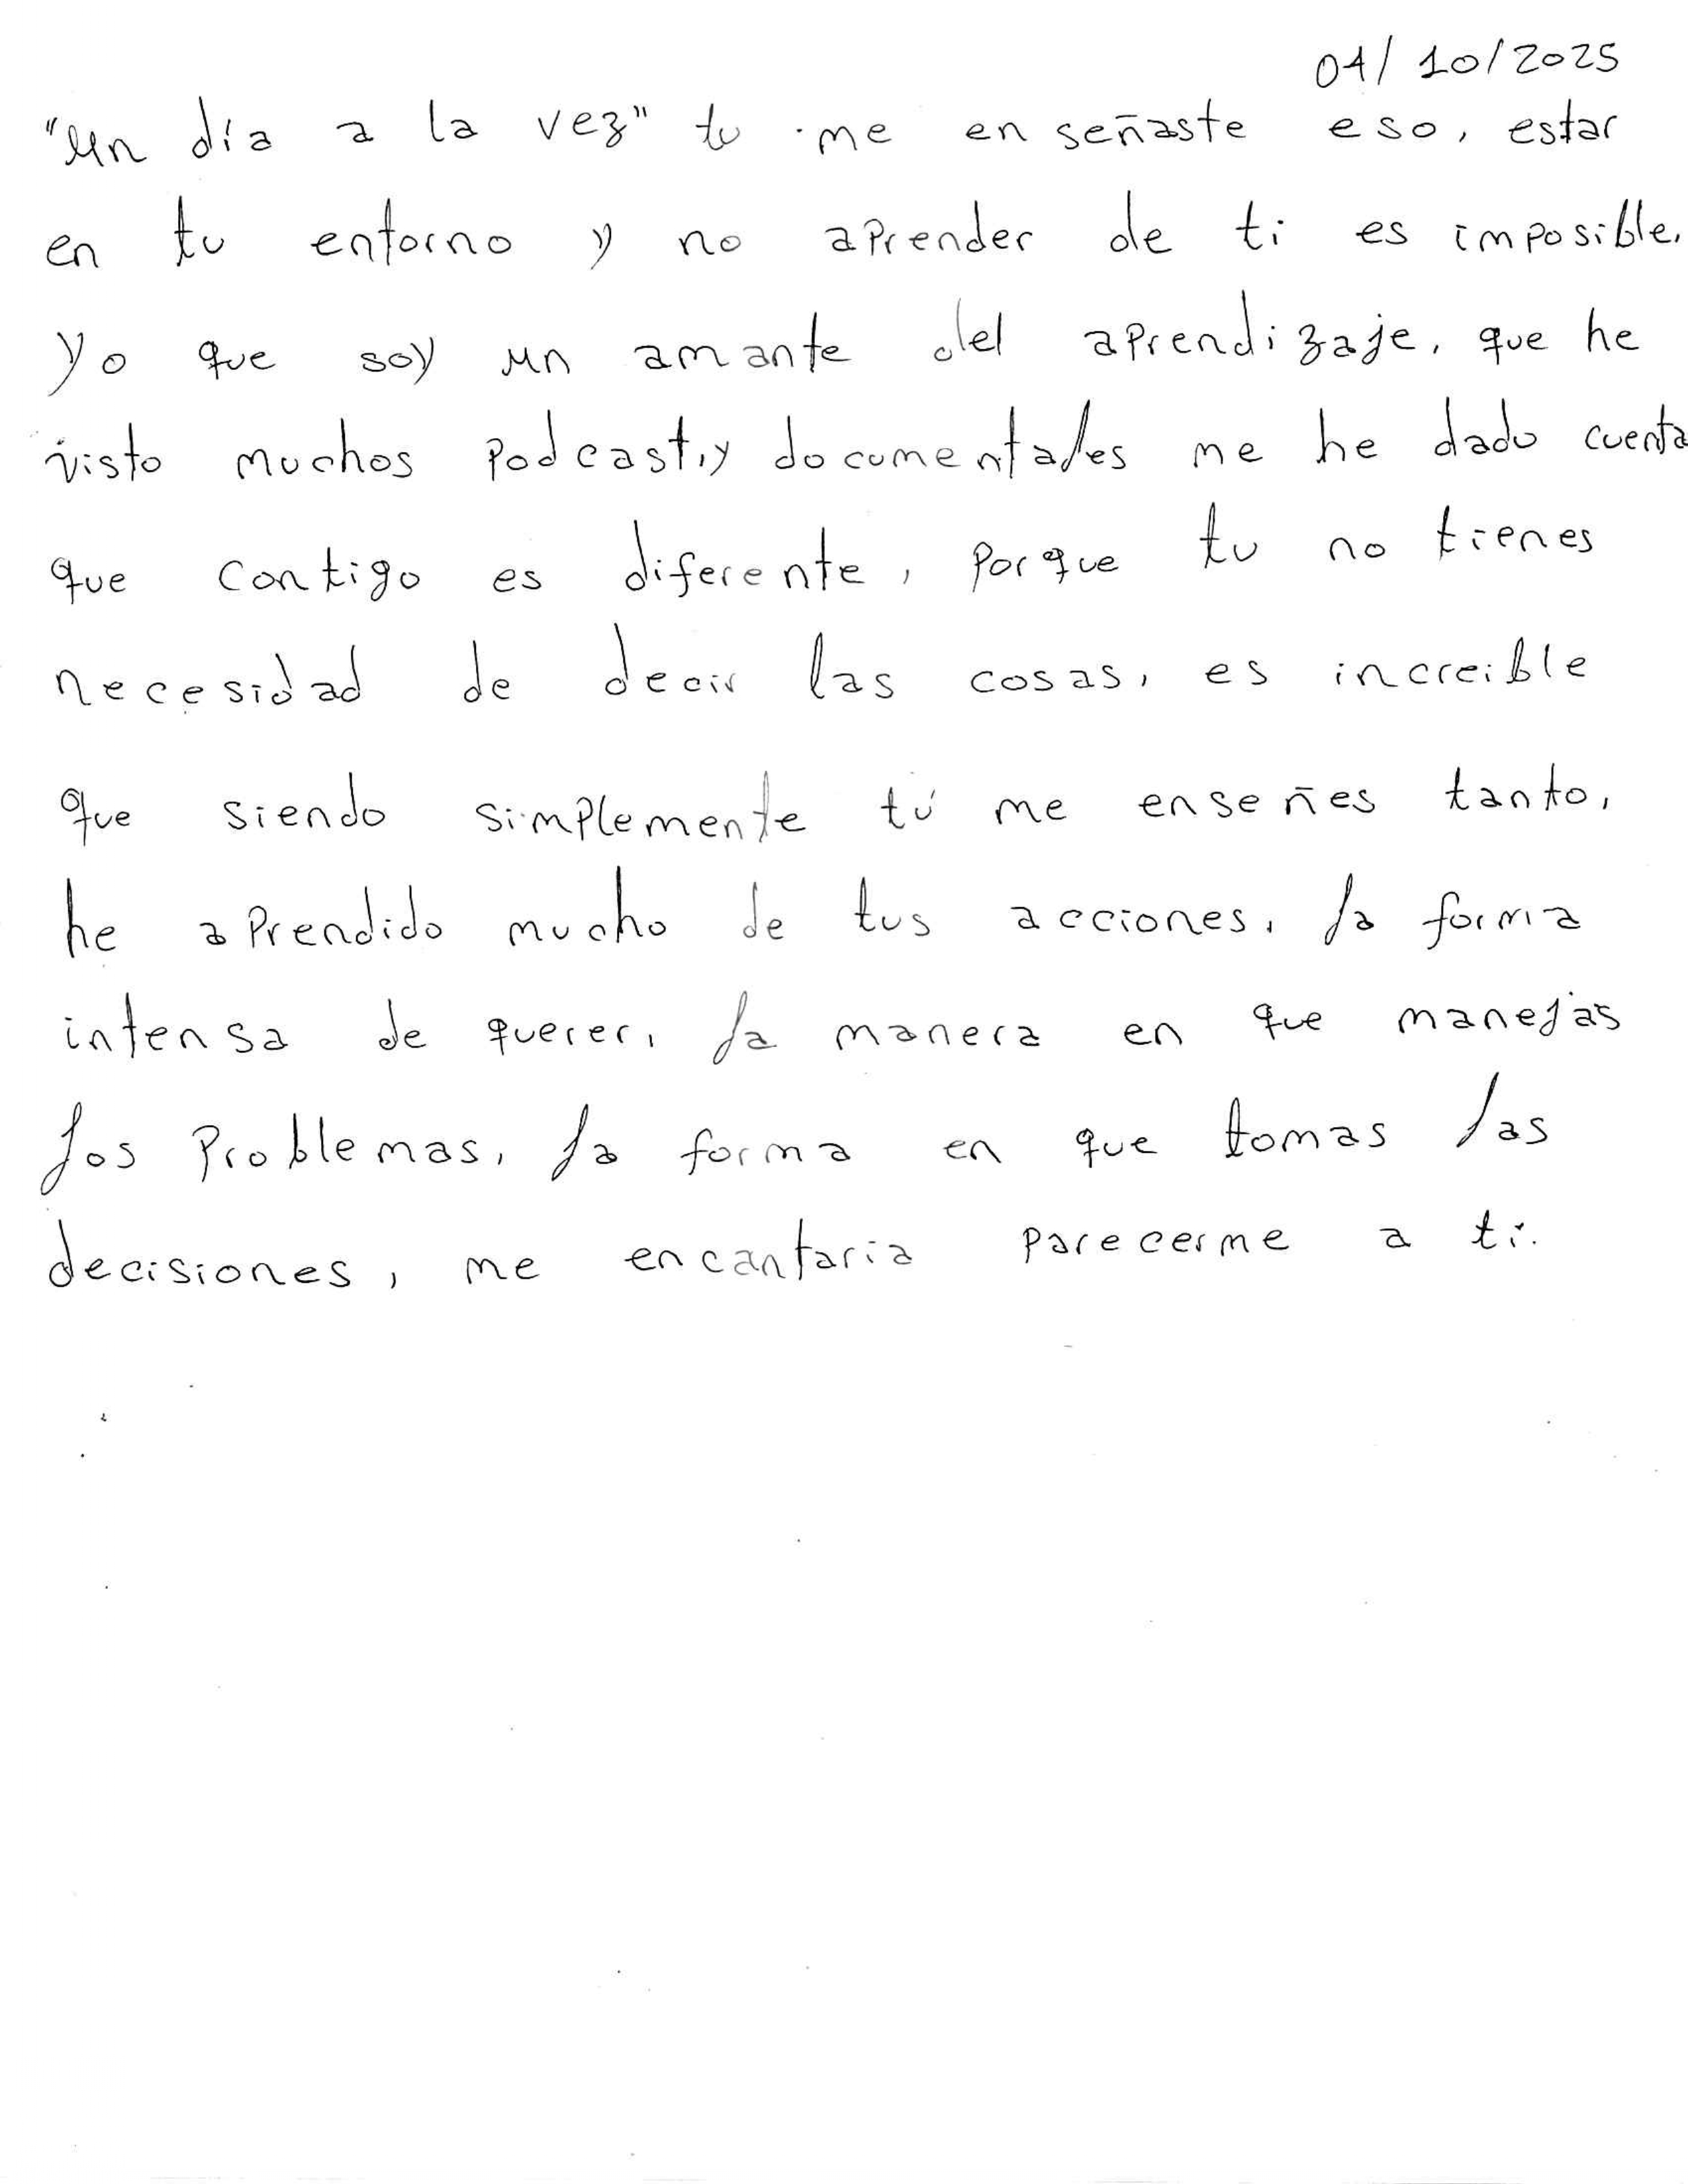 04/10/2025
"Un día a la vez" tu me enseñaste eso, estar
en tu entorno y no aprender de ti es imposible.
Yo que soy un amante del aprendizaje, que he
visto muchos podcast, y documentales me he dado cuenta
que contigo es diferente, porque tu no tienes
necesidad de decir las cosas, es increible
que siendo simplemente tú me enseñes tanto,
he aprendido mucho de tus acciones, la forma
intensa de querer, la manera en que manejas
los problemas, la forma en que tomas las
decisiones, me encantaria parecerme a ti.